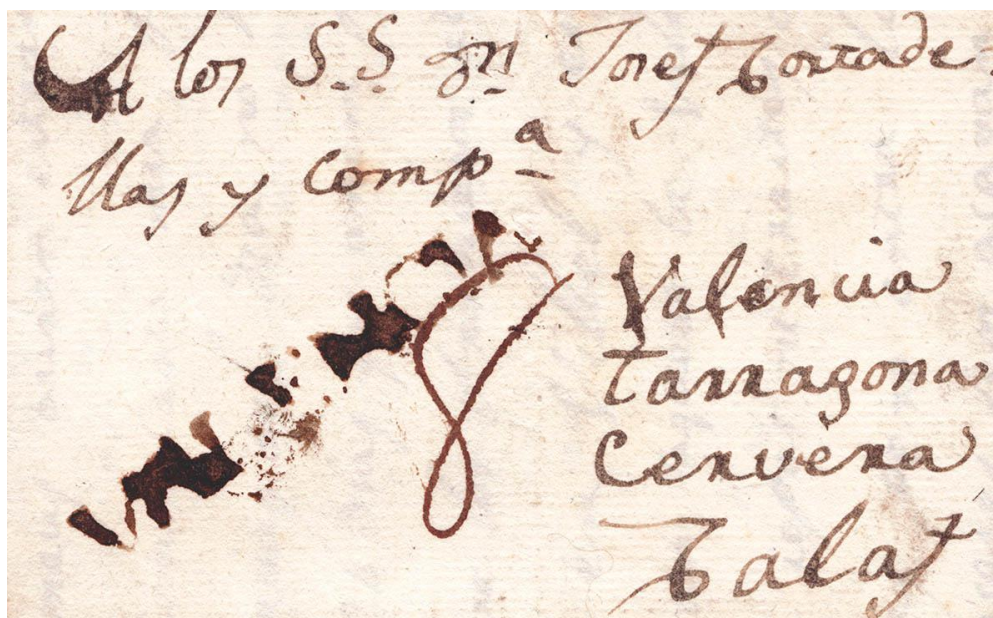 A los S.S. Dn. Josef Tortade
llas y compa
8
Valencia
Tarragona
Cervera
Talaf